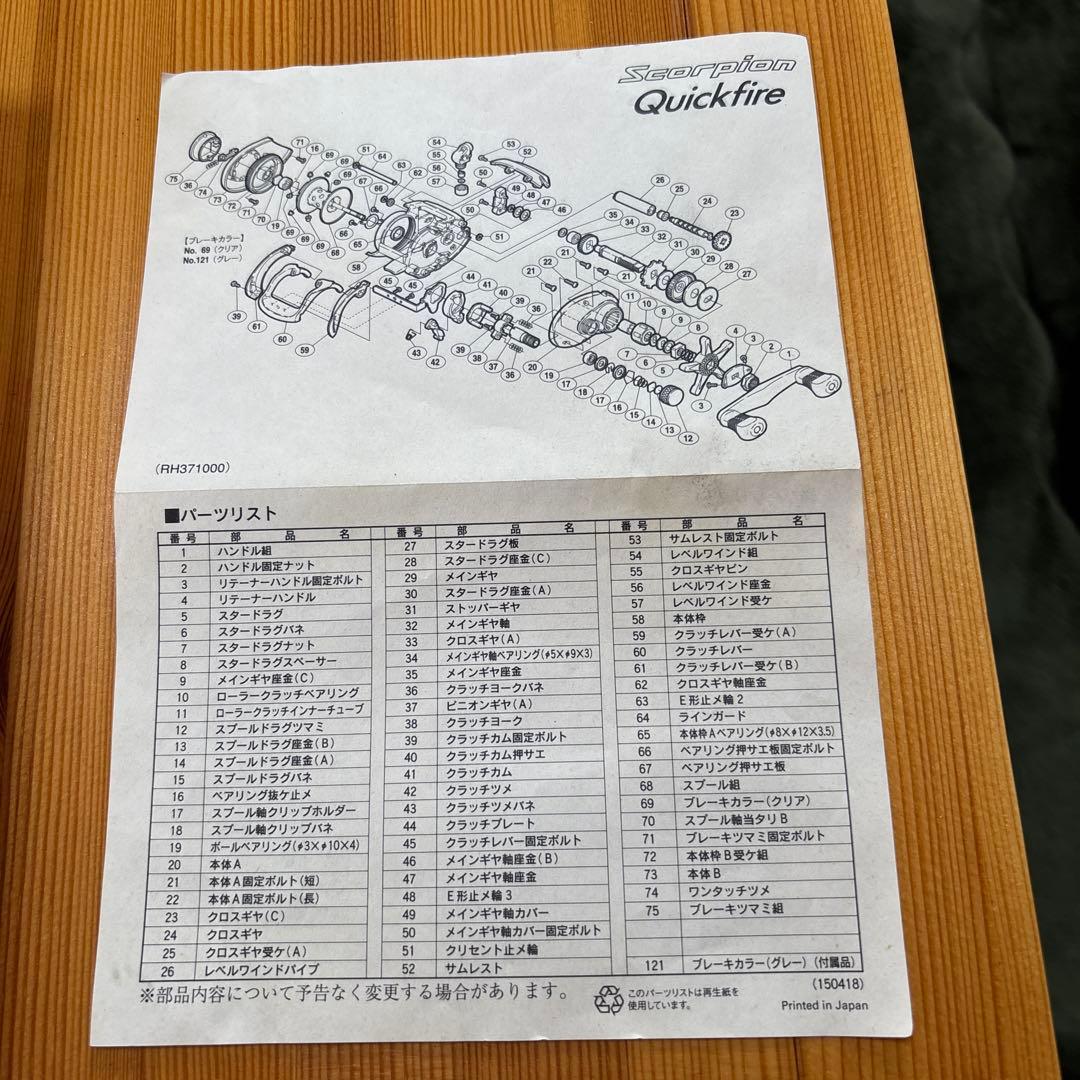 Scorpion
Quickfire
【ブレーキカラー】
No. 69 (クリア)
No.121 (グレー)
(RH371000)
■パーツリスト
番号 部品名 番号 部品名 番号 部品名
1 ハンドル組
2 ハンドル固定ナット
3 リテーナーハンドル固定ボルト
4 リテーナーハンドル
5 スタードラグ
6 スタードラグバネ
7 スタードラグナット
8 スタードラグスペーサー
9 メインギヤ座金(C)
10 ローラークラッチベアリング
11 ローラークラッチインナーチューブ
12 スプールドラグツマミ
13 スプールドラグ座金(B)
14 スプールドラグ座金(A)
15 スプールドラグバネ
16 ベアリング抜ケ止メ
17 スプール軸クリップホルダー
18 スプール軸クリップバネ
19 ボールベアリング(φ3×φ10×4)
20 本体A
21 本体A固定ボルト(短)
22 本体A固定ボルト(長)
23 クロスギヤ(C)
24 クロスギヤ
25 クロスギヤ受ケ(A)
26 レベルワインドパイプ
27 スタードラグ板
28 スタードラグ座金(C)
29 メインギヤ
30 スタードラグ座金(A)
31 ストッパーギヤ
32 メインギヤ軸
33 クロスギヤ(A)
34 メインギヤ軸ベアリング(φ5×φ9×3)
35 メインギヤ座金
36 クラッチヨークバネ
37 ピニオンギヤ(A)
38 クラッチヨーク
39 クラッチカム固定ボルト
40 クラッチカム押サエ
41 クラッチカム
42 クラッチツメ
43 クラッチツメバネ
44 クラッチプレート
45 クラッチレバー固定ボルト
46 メインギヤ軸座金(B)
47 メインギヤ軸座金
48 E形止メ輪3
49 メインギヤ軸カバー
50 メインギヤ軸カバー固定ボルト
51 クリセント止メ輪
52 サムレスト
53 サムレスト固定ボルト
54 レベルワインド組
55 クロスギヤピン
56 レベルワインド座金
57 レベルワインド受ケ
58 本体枠
59 クラッチレバー受ケ(A)
60 クラッチレバー
61 クラッチレバー受ケ(B)
62 クロスギヤ軸座金
63 E形止メ輪2
64 ラインガード
65 本体枠Aベアリング(φ8×φ12×3.5)
66 ベアリング押サエ板固定ボルト
67 ベアリング押サエ板
68 スプール組
69 ブレーキカラー(クリア)
70 スプール軸当タリB
71 ブレーキツマミ固定ボルト
72 本体枠B受ケ組
73 本体B
74 ワンタッチツメ
75 ブレーキツマミ組
121 ブレーキカラー(グレー)(付属品)
※部品内容について予告なく変更する場合があります。
このパーツリストは再生紙を
使用しています。
(150418)
Printed in Japan